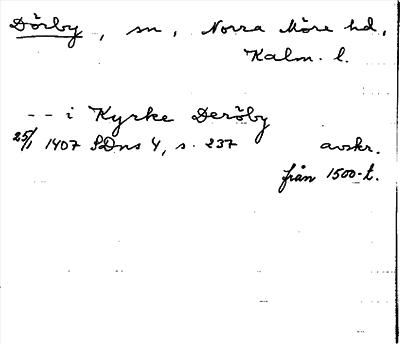 Dörby, sn, Norra Möre hd,
Kalm. l.
-- i Kyrke Deröby
25/1 1407 SDns 4, s. 237 avskr.
från 1500-t.